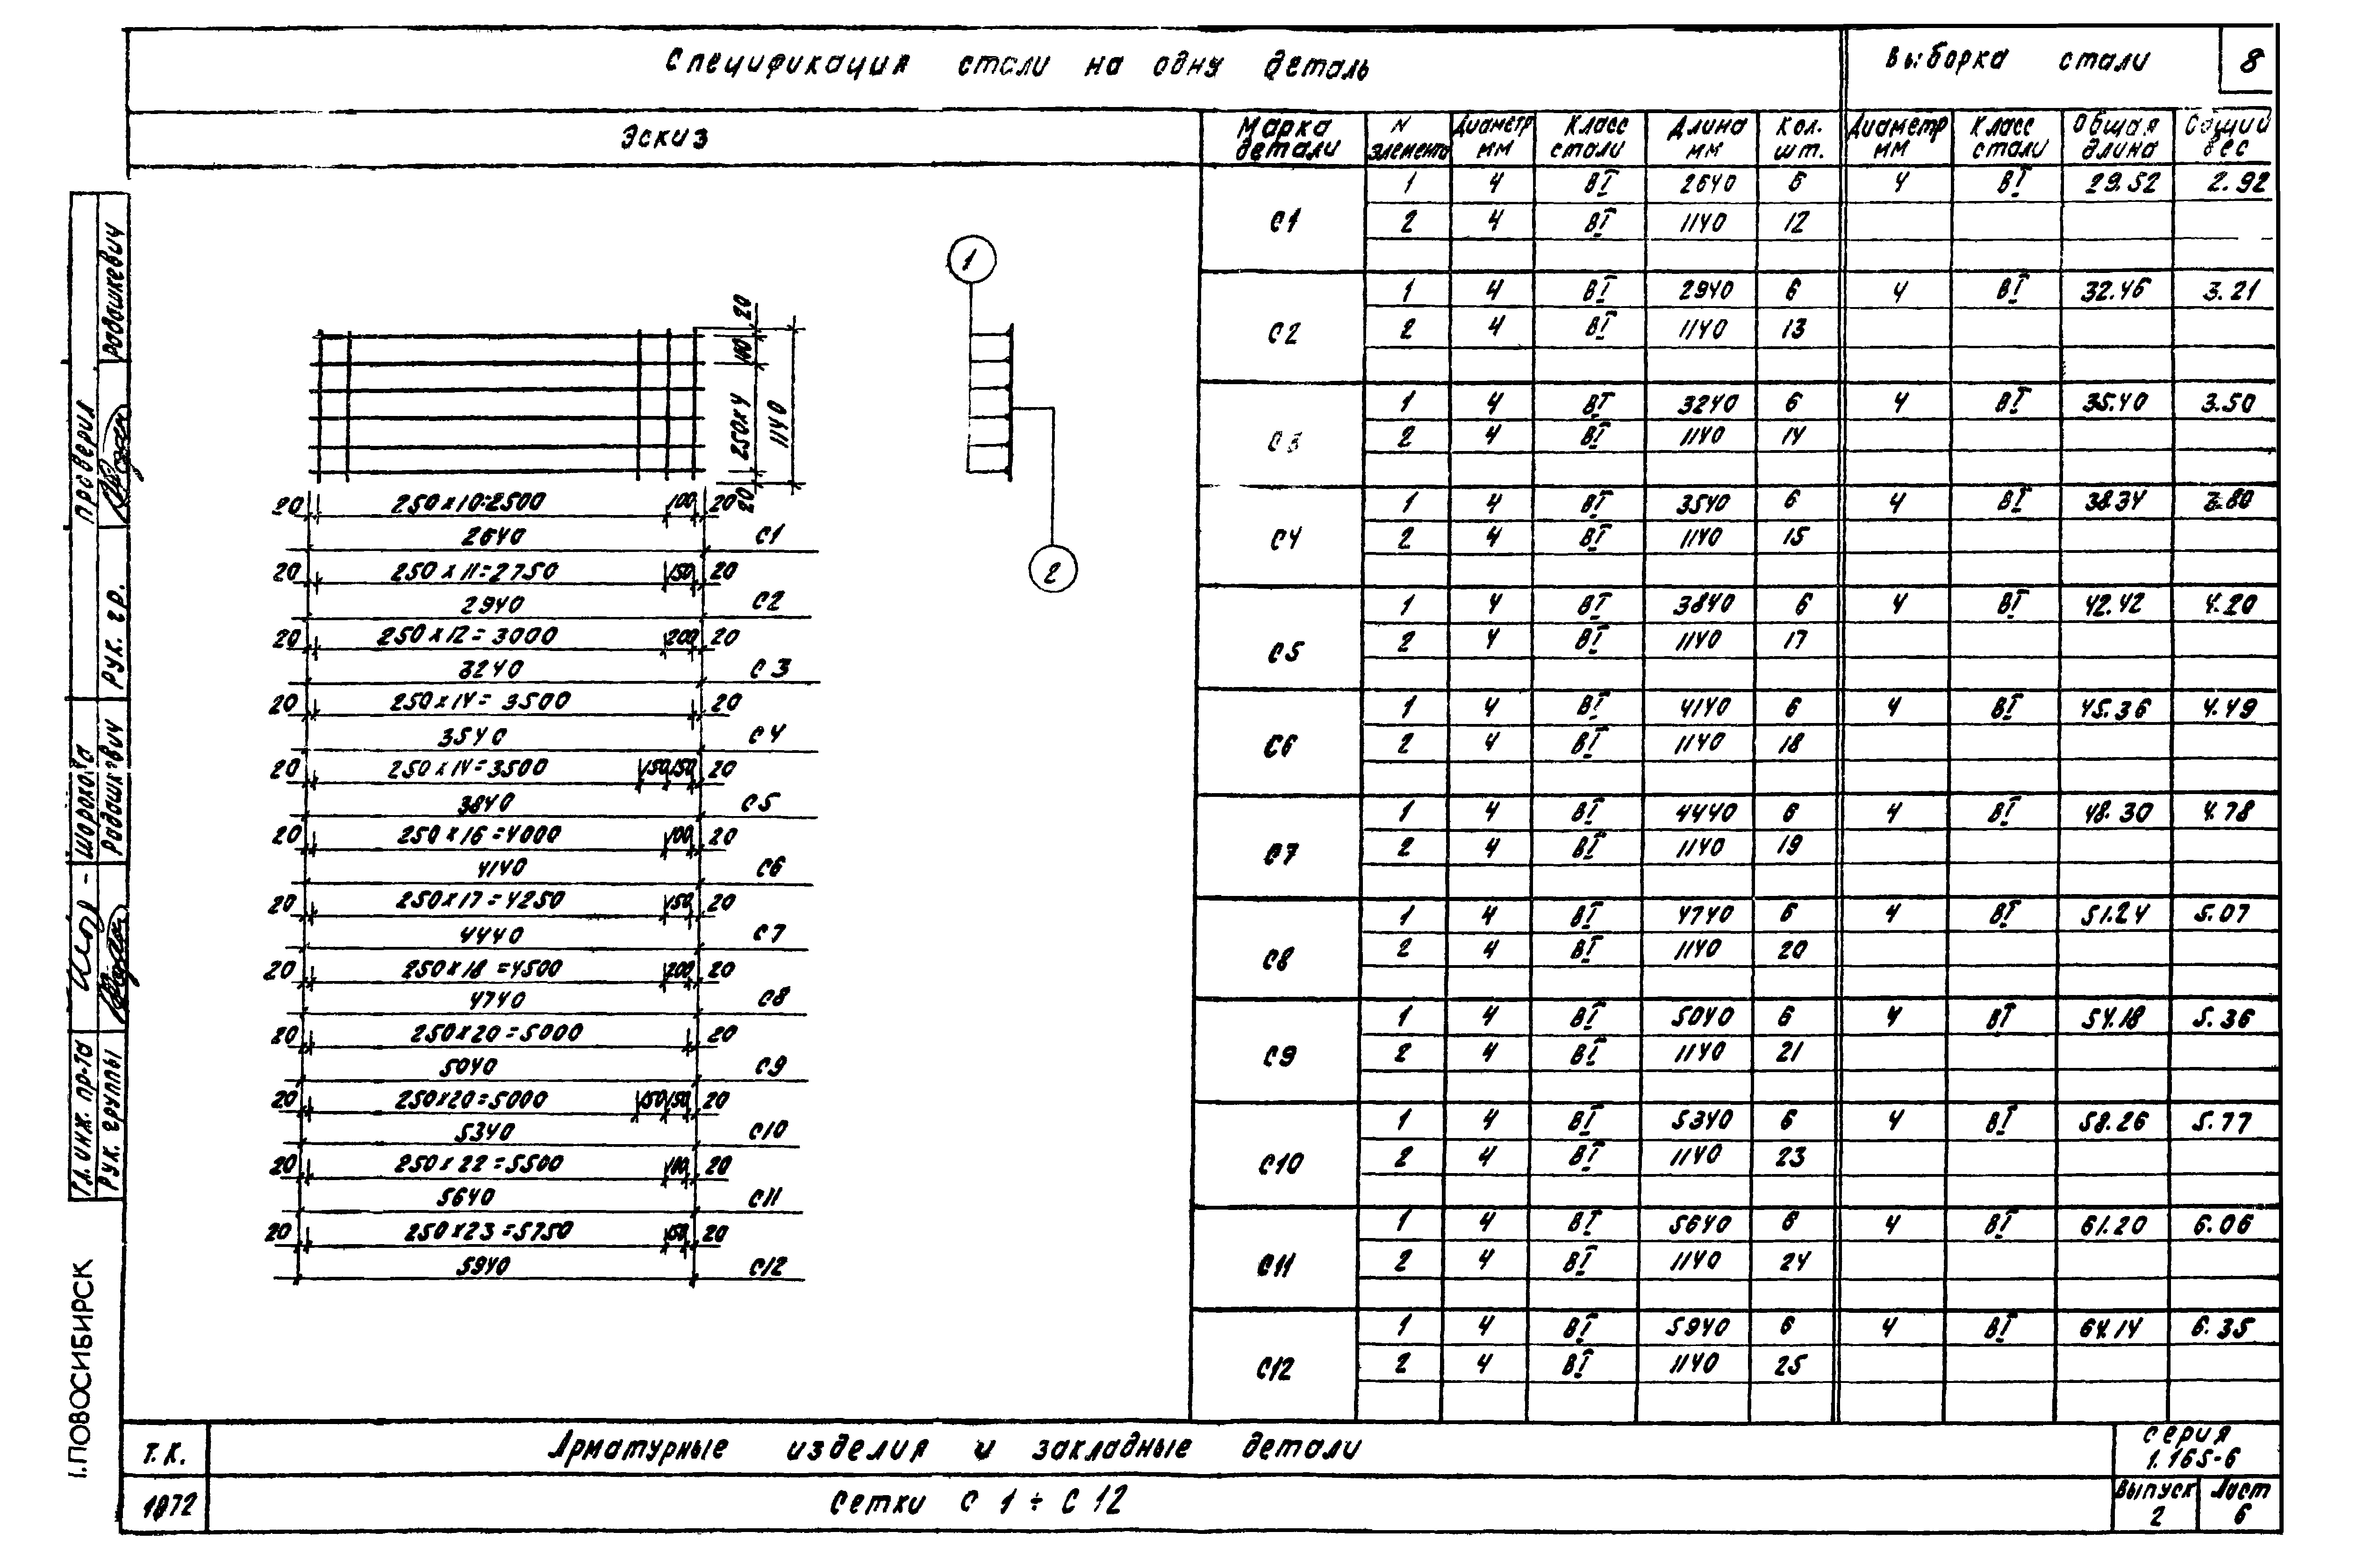 Спецификация стали на одну деталь
Выборка стали
8
Эскиз
Марка детали
N элемента
Диаметр мм
Класс стали
Длина мм
Кол. шт.
Диаметр мм
Класс стали
Общая длина
Общий вес
С1
1 4 ВI 2640 6 4 ВI 29.52 2.92
2 4 ВI 1140 12
С2
1 4 ВI 2940 6 4 ВI 32.46 3.21
2 4 ВI 1140 13
С3
1 4 ВI 3240 6 4 ВI 35.40 3.50
2 4 ВI 1140 14
С4
1 4 ВI 3540 6 4 ВI 38.34 3.80
2 4 ВI 1140 15
С5
1 4 ВI 3840 6 4 ВI 42.42 4.20
2 4 ВI 1140 17
С6
1 4 ВI 4140 6 4 ВI 45.36 4.49
2 4 ВI 1140 18
С7
1 4 ВI 4440 6 4 ВI 48.30 4.78
2 4 ВI 1140 19
С8
1 4 ВI 4740 6 4 ВI 51.24 5.07
2 4 ВI 1140 20
С9
1 4 ВI 5040 6 4 ВI 54.18 5.36
2 4 ВI 1140 21
С10
1 4 ВI 5340 6 4 ВI 58.26 5.77
2 4 ВI 1140 23
С11
1 4 ВI 5640 6 4 ВI 61.20 6.06
2 4 ВI 1140 24
С12
1 4 ВI 5940 6 4 ВI 64.14 6.35
2 4 ВI 1140 25
1
2
20
140
250х4
1140
20
20 250х10=2500 100 20
2640 С1
20 250х11=2750 150 20
2940 С2
20 250х12=3000 200 20
3240 С3
20 250х14=3500 20
3540 С4
20 250х14=3500 150 150 20
3840 С5
20 250х16=4000 100 20
4140 С6
20 250х17=4250 150 20
4440 С7
20 250х18=4500 200 20
4740 С8
20 250х20=5000 20
5040 С9
20 250х20=5000 150 150 20
5340 С10
20 250х22=5500 100 20
5640 С11
20 250х23=5750 150 20
5940 С12
Проверил
Радашкевич
Рук. гр.
Шорохова
Радашкевич
Гл. инж. пр-та
Рук. группы
г.ПОВОСИБИРСК
Т.К.
1972
Арматурные изделия и закладные детали
Сетки С1÷С12
серия
1.165-6
Выпуск
2
Лист
6